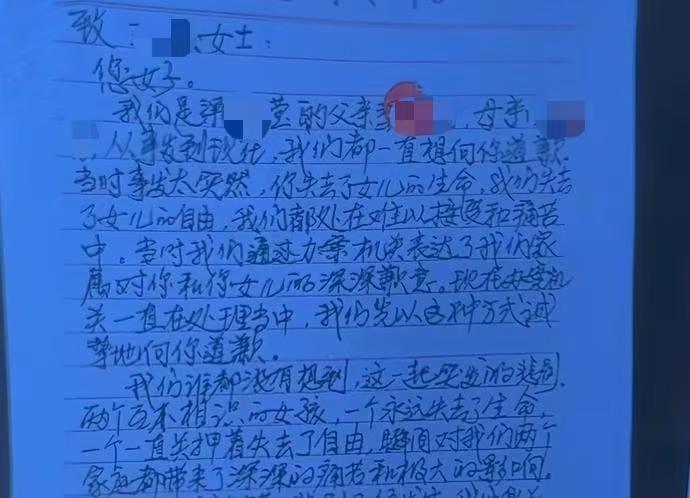 致：女士：
您好。
我们是谭莹的父亲，母亲
从事发到现在，我们都一直想向你道歉
当时事发太突然，你失去了女儿的生命，我们失去
了女儿的自由，我们都处在难以接受和痛苦
中。当时我们通过办案机关表达了我们家
属对你和你女儿的深深歉意。现在办案机
关一直在处理当中，我们先以这种方式诚
挚地向你道歉。
我们谁都没有想到，这一起突发的悲剧，
两个互不相识的女孩，一个永远失去了生命，
一个一直关押着失去了自由，瞬间对我们两个
家庭都带来了深深的痛苦和极大的影响。